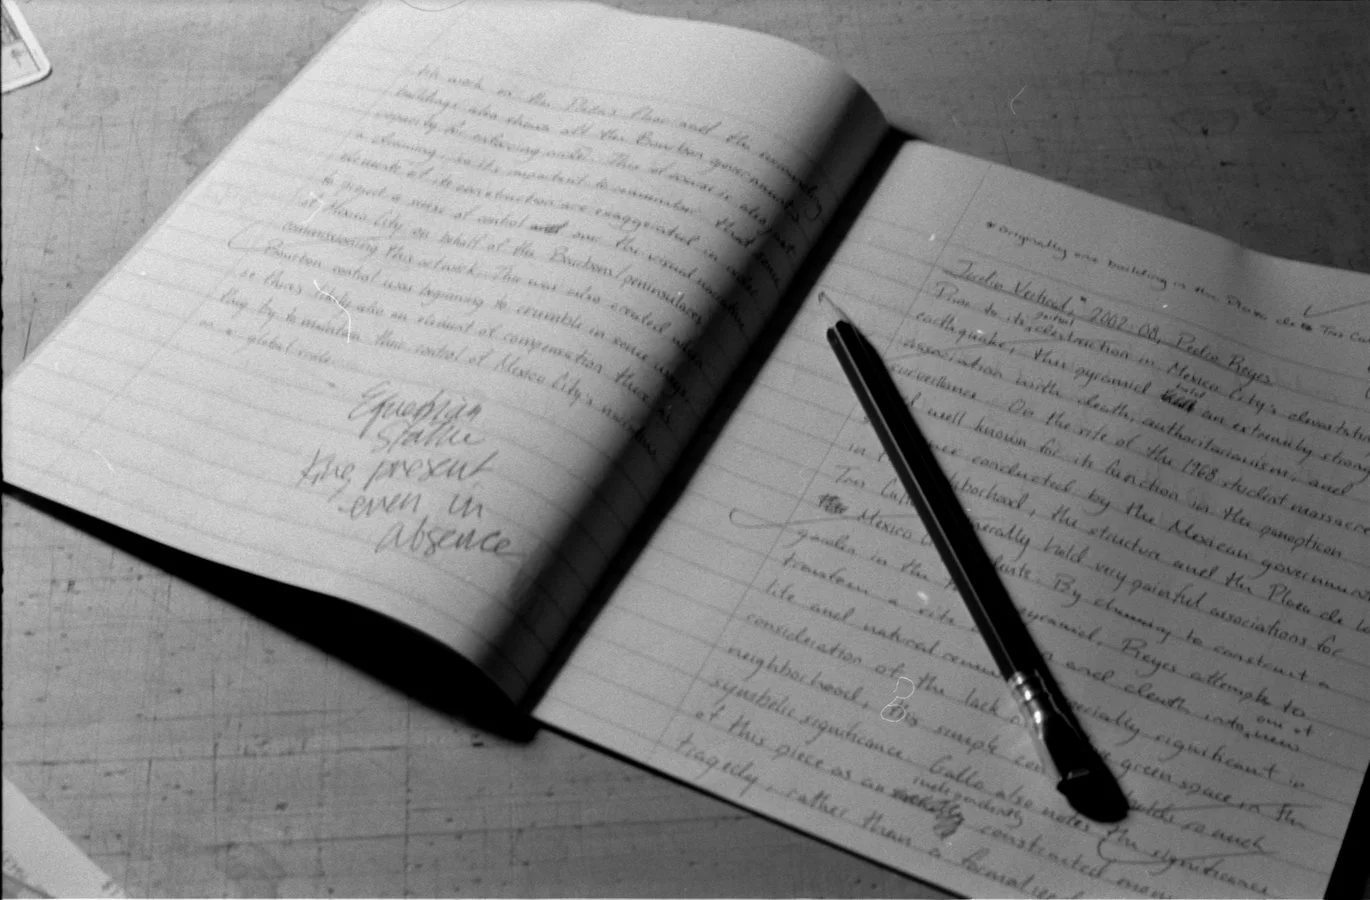 work on the Plaza's floor and the surrounding
buildings also shows off the Bourbon government's
capacity for enforcing order. This of course is also just
a drawing, so it's important to consider that some
elements of its construction are exaggerated in order
to project a sense of control over the visual narrative
of Mexico City on behalf of the Bourbons/peninsulares
commissioning this artwork. This was also created when
Bourbon control was beginning to crumble in some ways,
so this is likely also an element of compensation there
to maintain their control of Mexico City's
on a global scale.
Equestrian
statue
King present
even in
absence
*originally one building in the Plaza de las Tres Cul
Jardin Vertical,* 2002-08, Pedro Reyes
Prior to its partial destruction in Mexico City's devastating
earthquake, this pyramid held an extremely strong
association with death, authoritarianism, and
surveillance. On the site of the 1968 student massacre
well known for its function in the panopticon
in conducted by the Mexican government
neighborhood, the structure and the Plaza de la
Tres generally hold very painful associations for
Mexico By choosing to construct a
garden in the pyramid, Reyes attempts to
transform a site and death into one of new
life and natural especially significant in
consideration of the lack green space in the
neighborhood, this simple so much
symbolic significance. Gallo also notes the significance
of this piece as an independently constructed
tragedy, rather than a